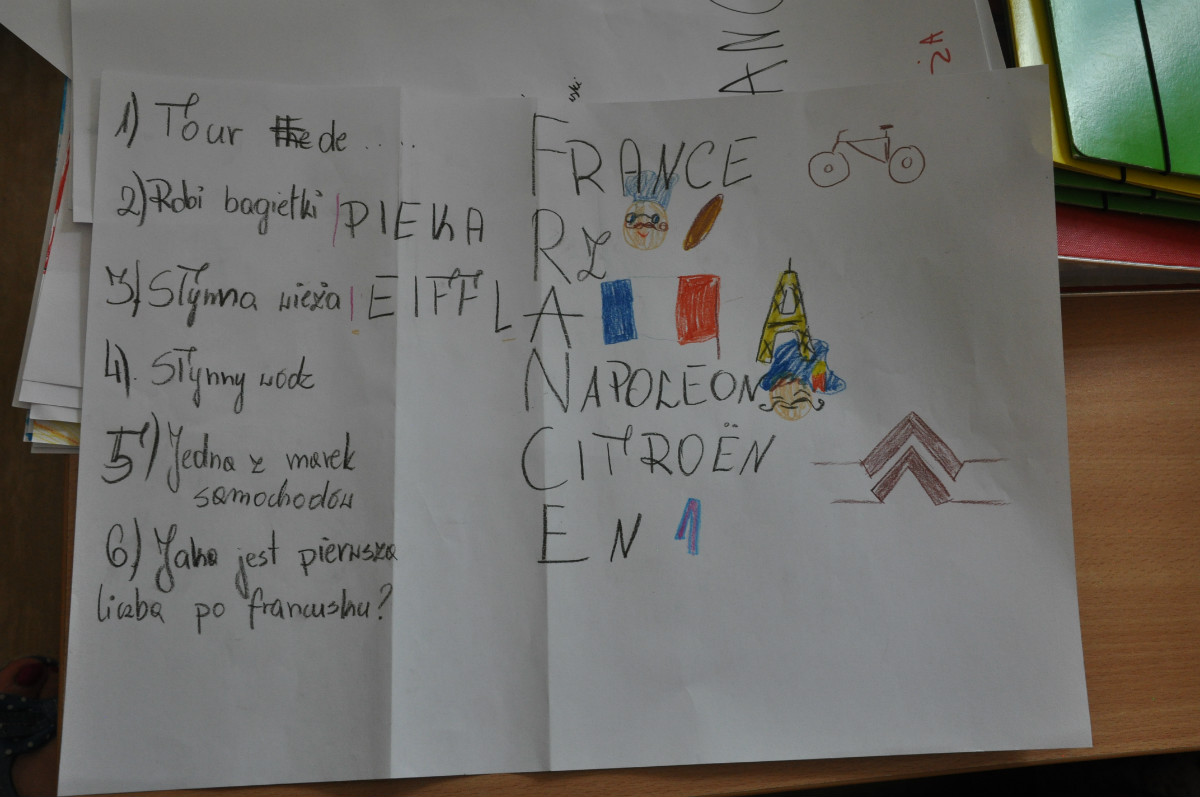 ANC
2A
1) Tour the de ..... FRANCE
2) Robi bagietki | PIEKARZ
3) Słynna wieża | EIFFLA
4). Słynny wódz NAPOLEON
5) Jedna z marek CITROËN
samochodów
6) Jaka jest pierwsza EN 1
liczba po francusku?